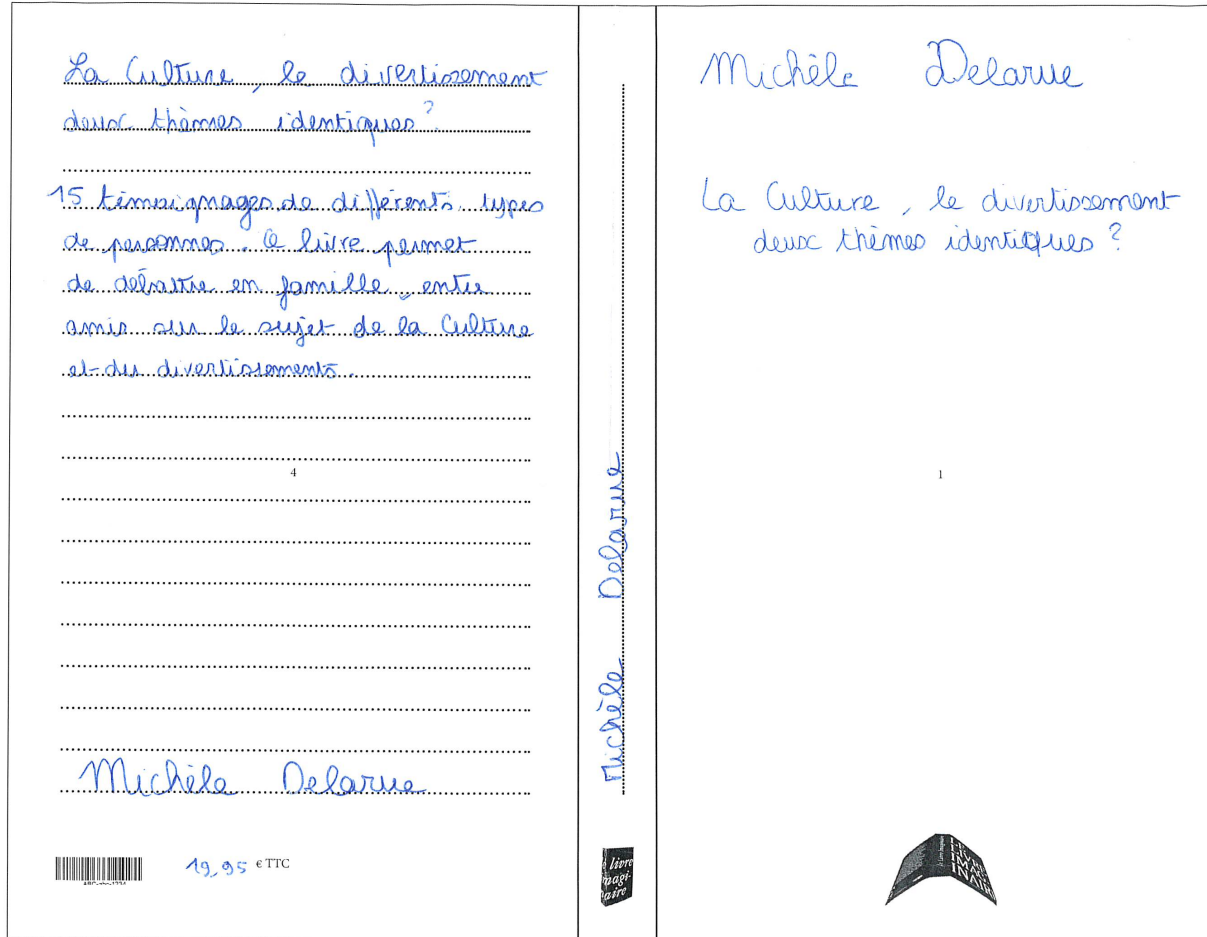 La Culture, le divertissement
deux thèmes identiques ?
15 témoignages de différents types
de personnes. Ce livre permet
de débattre en famille, entre
amis sur le sujet de la Culture
et du divertissements.
4
Michèle Delarue
19,95 € TTC
ABC-abc-1234
Michèle Delarue
livre
imagi-
naire
Michèle Delarue
La Culture, le divertissement
deux thèmes identiques ?
1
Le Livre Imaginaire
LIVRE
IMAG
INAIR